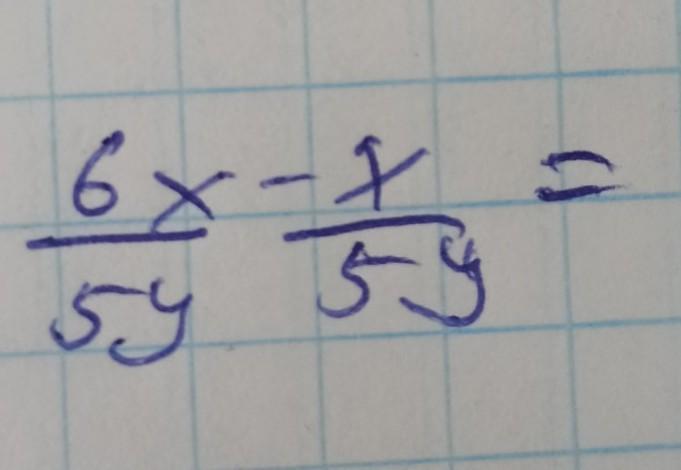 6x/5y - x/5y =